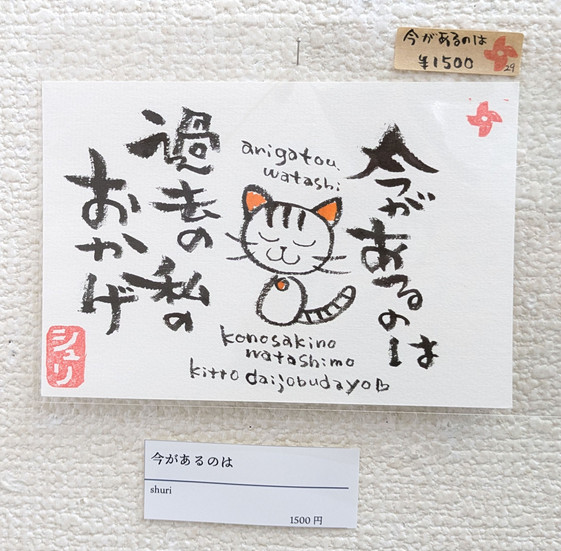 今があるのは
¥1500
29
今があるのは
過去の私の
おかげ
arigatou
watashi
konosakino
watashimo
kitto daijobudayo
シュリ
今があるのは
shuri
1500 円